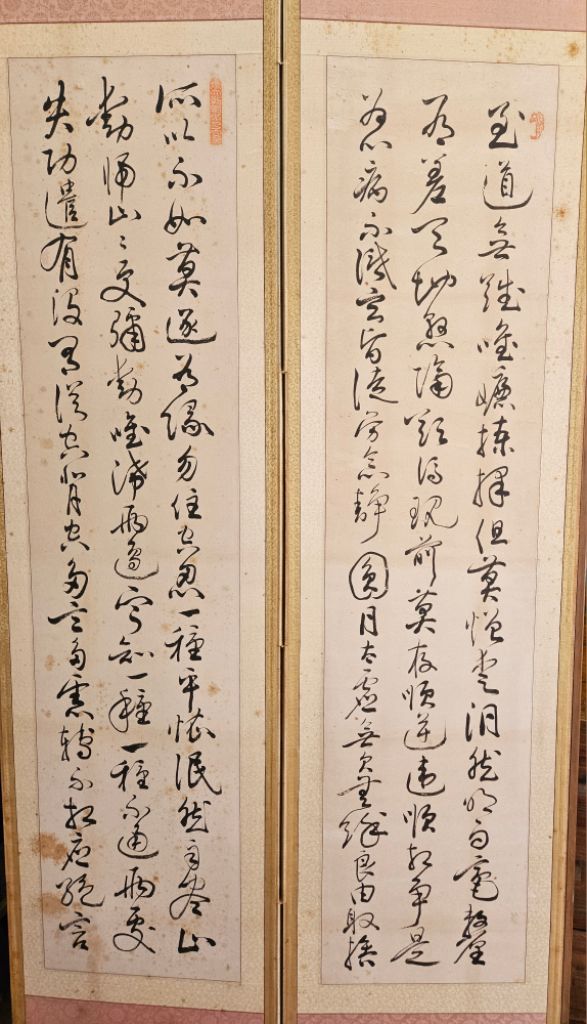 至道無難唯嫌揀擇但莫憎愛洞然明白毫釐
有差天地懸隔欲得現前莫存順逆違順相爭是
為心病不識玄旨徒勞念靜圓同太虛無欠無餘良由取捨
所以不如莫逐有緣勿住空忍一種平懷泯然自盡止
動歸止〻更彌動唯滯兩邊寧知一種一種不通兩處
失功遣有沒有從空背空多言多慮轉不相應絕言